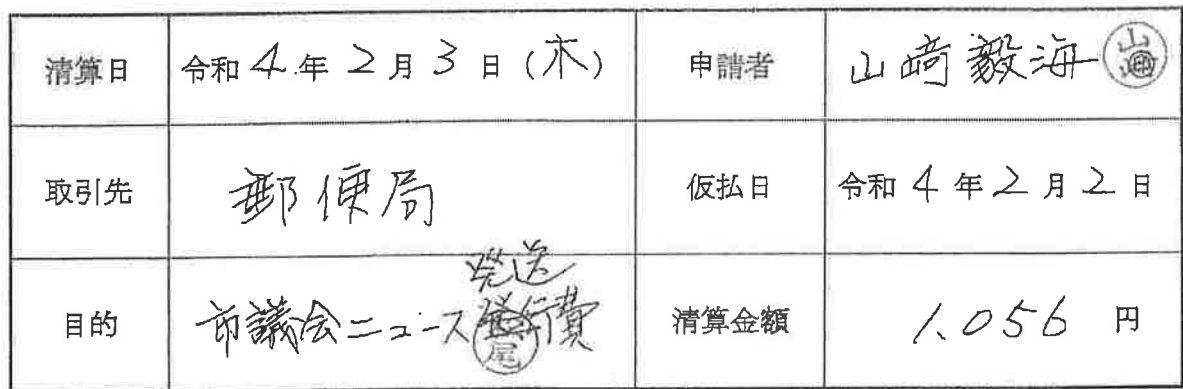 清算日 令和 4 年 2 月 3 日 (木) 申請者 山崎毅海
取引先 郵便局 仮払日 令和 4 年 2 月 2 日
発送
目的 市議会ニュース発行費 清算金額 1,056 円